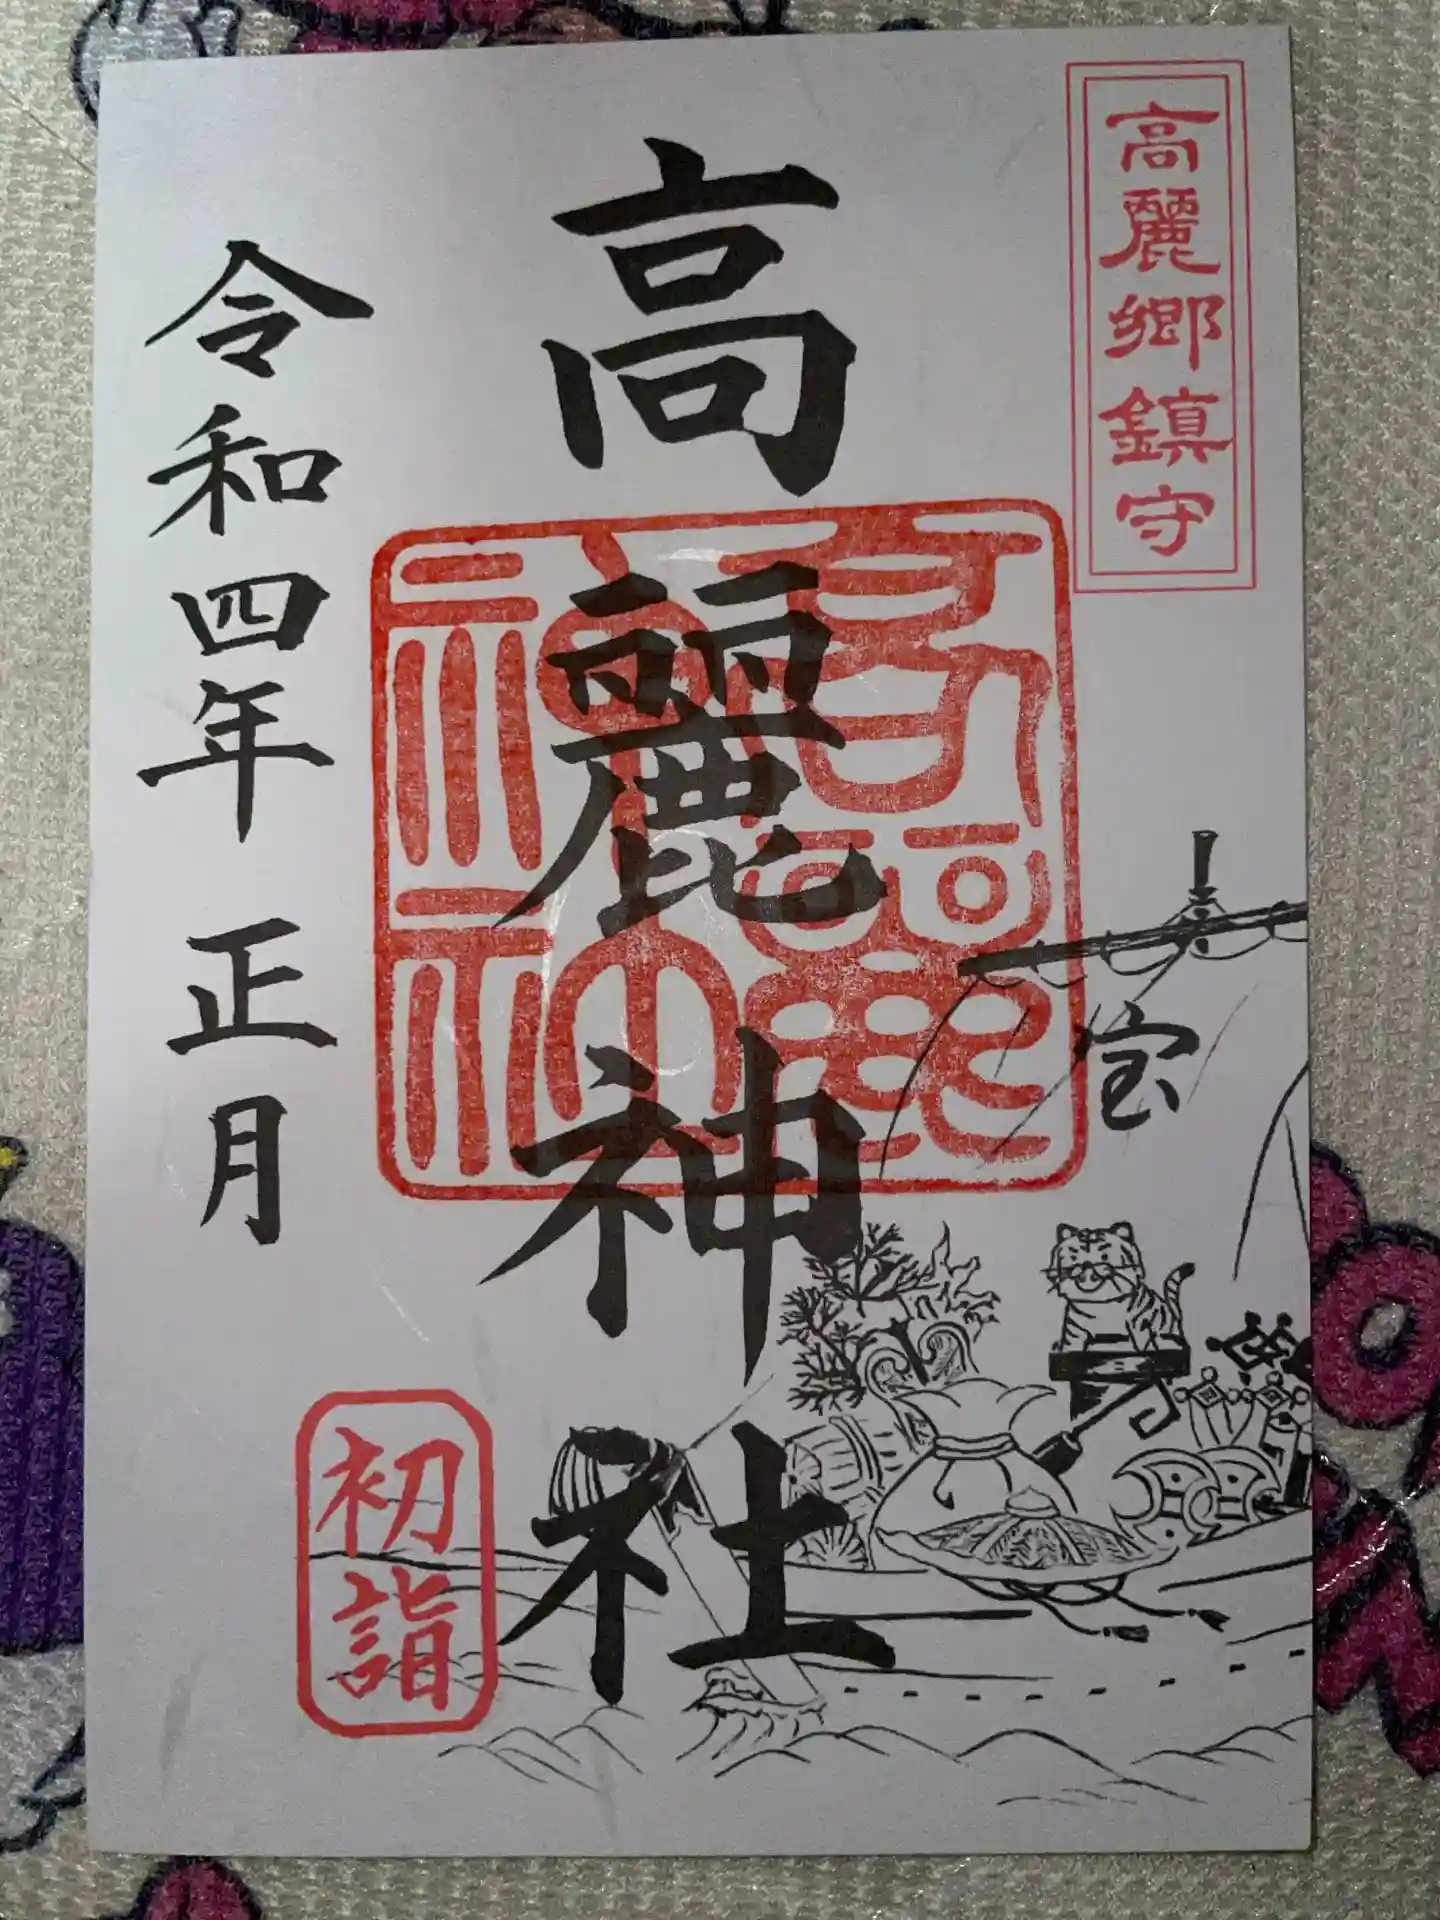 高麗郷鎮守
高麗神社
高麗神社
宝
令和四年 正月
初詣